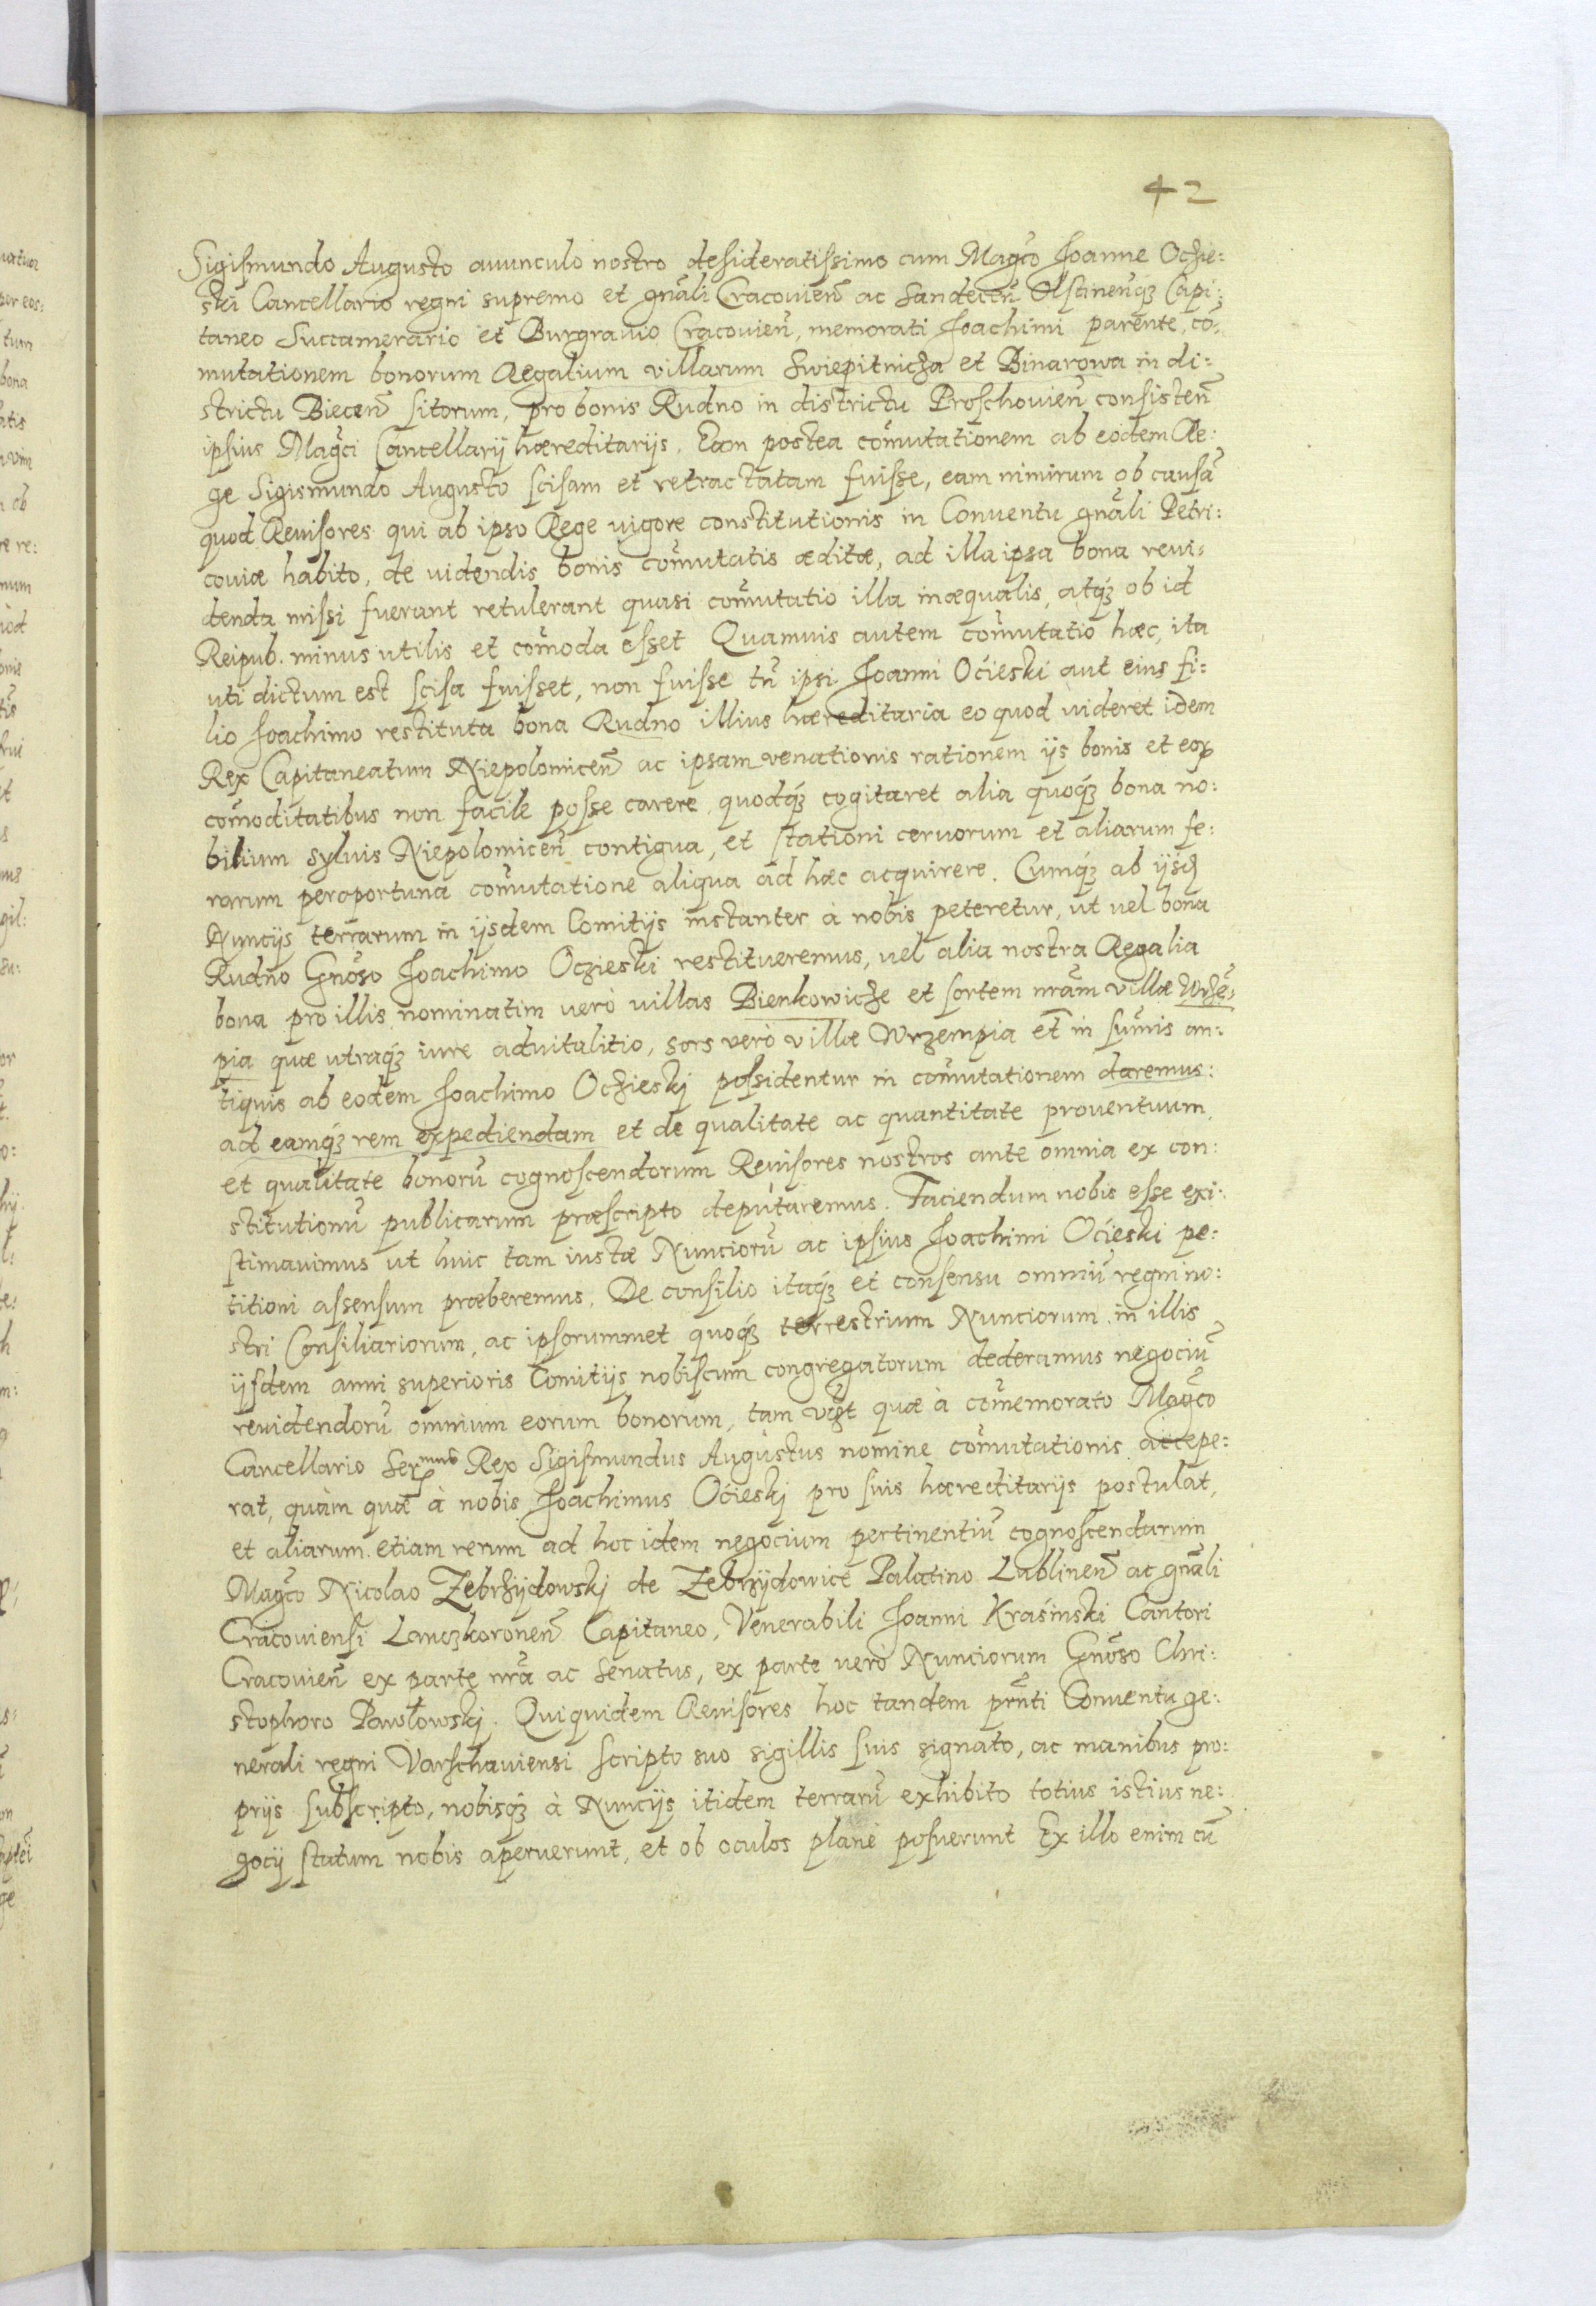 42
Sigismundo Augusto auunculo nostro desideratissimo cum Magco Joanne Oczie:
ski Cancellario regni supremo et gnāli Cracouień ac Sandecen̄ Olstineńq₃ Capi:
taneo Succamerario et Burgrauio Cracouień, memorati Joachimi parente, cō:
mutationem bonorum Regalium villarum Swiepitnicza et Binarowa in di:
strictu Biecen̄ sitorum, pro bonis Rudno in districtu Proschouień consisteń
ipsius Magci Cancellarij hæreditarijs. Eam postea cōmutationem ab eodem Re:
ge Sigismundo Augusto scisam et retractatam fuisse, eam nimirum ob causā
quod Reuisores qui ab ipso Rege vigore constitutionis in Conuentu gnāli Petri:
couiæ habito, de videndis bonis cōmutatis æditæ, ad illa ipsa bona reui:
denda missi fuerant retulerant quasi cōmutatio illa inæqualis, atq₃ ob id
Reipub. minus utilis et cōmoda esset Quamuis autem cōmutatio hæc, ita
uti dictum est scisa fuisset, non fuisse tn̄ ipsi Joanni Ocieski aut eius fi:
lio Joachimo restituta bona Rudno illius hæreditaria eo quod uideret idem
Rex Capitaneatum Niepolomiceń ac ipsam venationis rationem ijs bonis et eoꝝ
cōmoditatibus non facile posse carere, quodq₃ cogitaret alia quoq₃ bona no:
bilium syluis Niepolomiceń contigua, et stationi ceruorum et aliarum fe:
rarum peroportuna cōmutatione aliqua ad hæc acquirere. Cumq₃ ab ijsd
Nuncijs terrarum in ijsdem Comitijs instanter à nobis peteretur, ut uel bona
Rudno Gnōso Joachimo Oczieski restitueremus, uel alia nostra Regalia
bona pro illis, nominatim uerò uillas Bienkowicze et sortem nrām villæ Wrzē:
pia quæ utraq₃ iure aduitalitio, sors verò villæ Wrzempia et in sum̄is an:
tiquis ab eodem Joachimo Oczieskj possidentur in cōmutationem daremus:
ad eamq₃ rem expediendam et de qualitate ac quantitate prouentuum,
et qualitate bonorū cognoscendorum Reuisores nostros ante omnia ex con:
stitutionū publicarum præscripto deputaremus. Faciendum nobis esse exi:
stimauimus ut huic tam iustæ Nunciorū ac ipsius Joachimi Ocieski pe:
titioni assensum præberemus. De consilio itaq₃ et consensu omniū regni no:
stri Consiliariorum, ac ipsorummet quoq₃ terrestrium Nunciorum, in illis
ijsdem anni superioris Comitijs nobiscum congregatorum dederamus negociū
reuidendorū omnium eorum bonorum, tam vzt quæ à cōmemorato Magco
Cancellario Sermus Rex Sigismundus Augustus nomine cōmutationis accepe:
rat, quàm quæ à nobis Joachimus Ocieskj pro suis hæreditarijs postulat,
et aliarum etiam rerum ad hoc idem negocium pertinentiū cognoscendarum
Magco Nicolao Zebrzijdowskj de Zebrzijdowice Palatino Lublineń ac gnāli
Cracouiensi Lanczkoroneń Capitaneo, Venerabili Joanni Krasinski Cantori
Cracouień ex parte nrā ac Senatus, ex parte uerò Nunciorum Gnōso Chri:
stophoro Pawłowskj. Quiquidem Reuisores hoc tandem prn̄ti Conuentu ge:
nerali regni Varschauiensi scripto suo sigillis suis signato, ac manibus pro:
prijs subscripto, nobisq₃ à Nuncijs itidem terrarū exhibito totius istius ne:
gocij statum nobis aperuerunt, et ob oculos planè posuerunt Ex illo enim cū